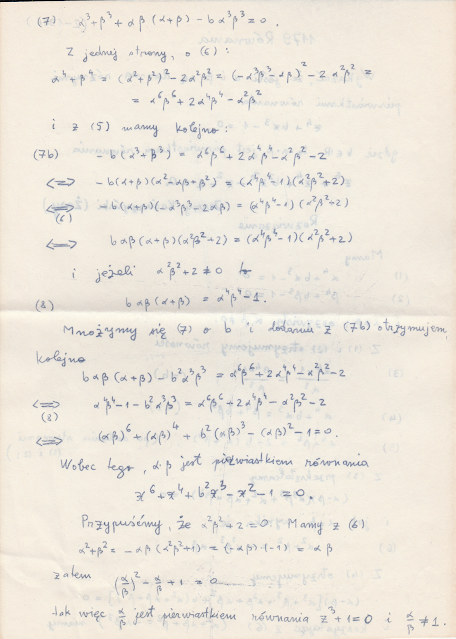 (7) α³+β³+αβ(α+β)-bα³β³=0.
Z jednej strony, o (6):
α⁴+β⁴=(α²+β²)²-2α²β²=(-α³β³-αβ)²-2α²β²=
=α⁶β⁶+2α⁴β⁴-α²β²
i z (5) mamy kolejno:
(7b) -b(α³+β³)=α⁶β⁶+2α⁴β⁴-α²β²-2
⟺ -b(α+β)(α²-αβ+β²)=(α⁴β⁴-1)(α²β²+2)
⟺ -b(α+β)(-α³β³-2αβ)=(α⁴β⁴-1)(α²β²+2)
(6)
⟺ bαβ(α+β)(α²β²+2)=(α⁴β⁴-1)(α²β²+2)
i jeżeli α²β²+2≠0
(8) bαβ(α+β)=α⁴β⁴-1.
Mnożymy się (7) o b i dodaniu z (7b) otrzymujem,
kolejno
bαβ(α+β)-b²α³β³=α⁶β⁶+2α⁴β⁴-α²β²-2
⟺ α⁴β⁴-1-b²α³β³=α⁶β⁶+2α⁴β⁴-α²β²-2
(8)
⟺ (αβ)⁶+(αβ)⁴+b²(αβ)³-(αβ)²-1=0.
Wobec tego, αβ jest pierwiastkiem równania
x⁶+x⁴+b²x³-x²-1=0.
Przypuśćmy, że α²β²+2=0. Mamy z (6)
α²+β²=-αβ(α²β²+1)=(-αβ)·(-1)=αβ
zatem (α/β)²-α/β+1=0
tak więc α/β jest pierwiastkiem równania z³+1=0 i α/β≠1.